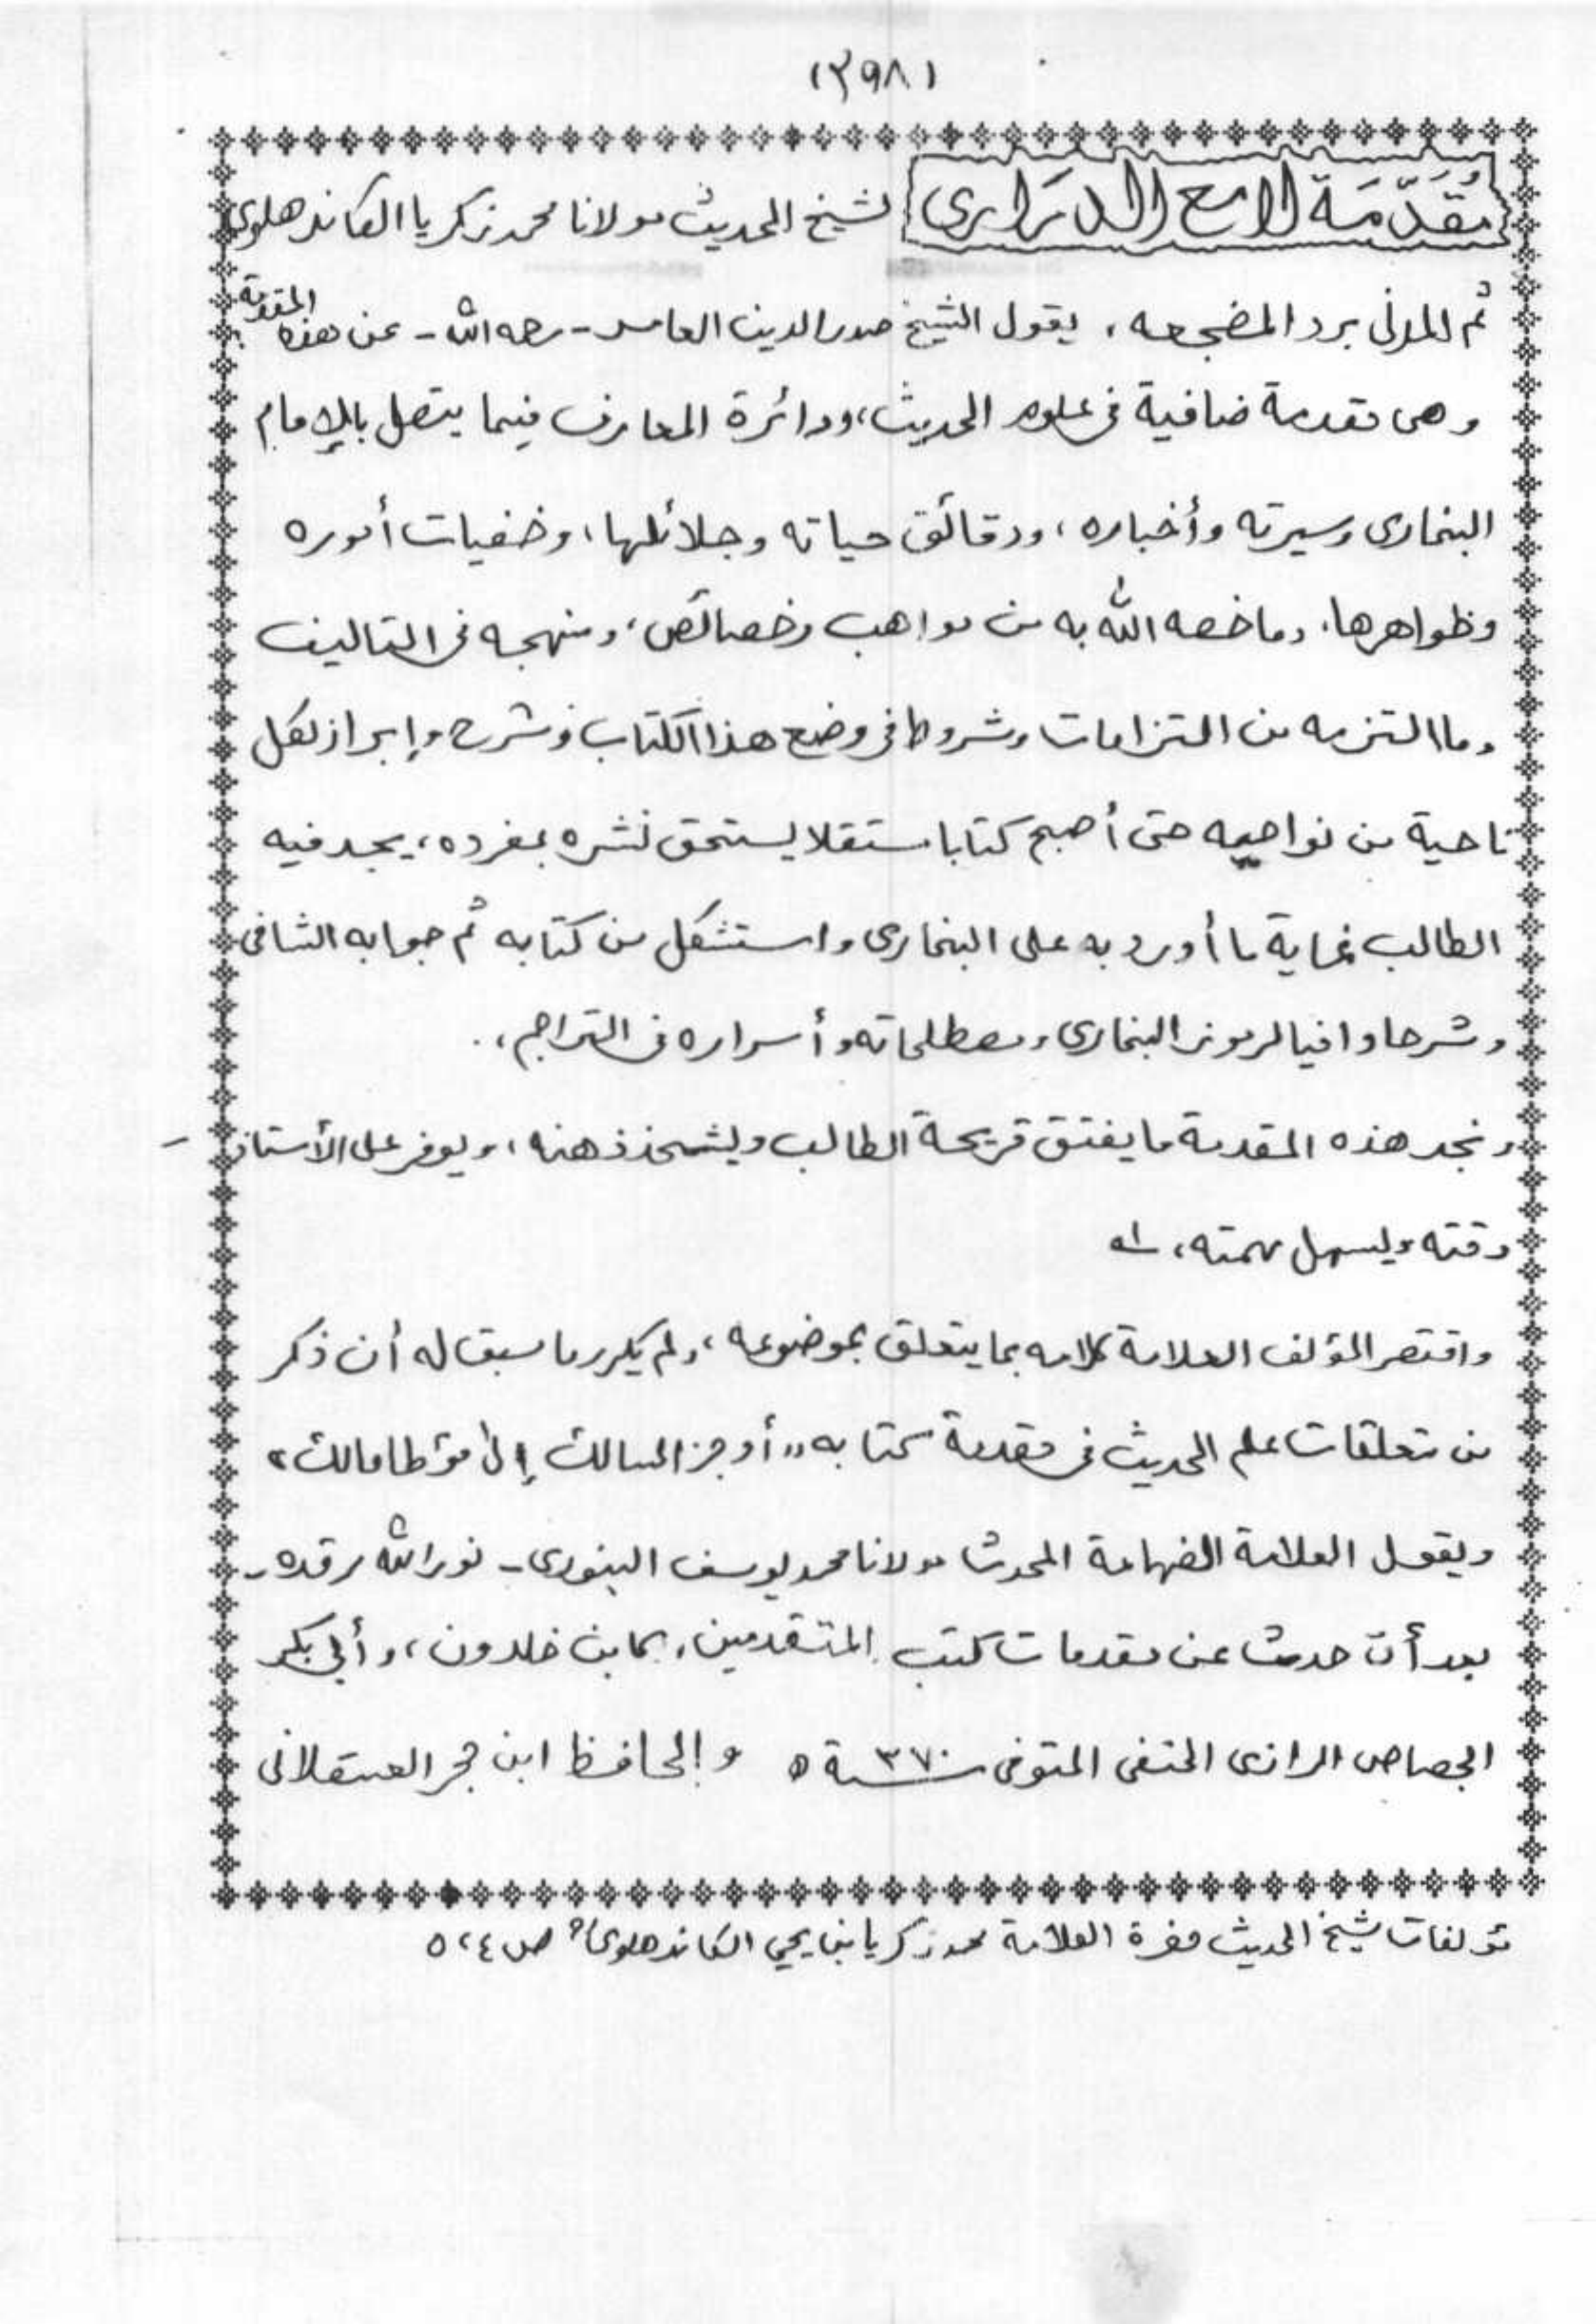 (٣٩٨)
مُقَدَّمَة لامع الدراری لشيخ الحديث مولانا محمد زكريا الكاندهلوی
ثم المدنی برد المضجعه، يقول الشيخ صدر الدين العامر - رحمه الله - عن هذه المقدمة
وهی مقدمة ضافية فی علوم الحديث، ودائرة المعارف فيما يتصل بالإمام
البخاری وسيرته وأخباره، ودقائق حياته وجلائلها، وخفيات أموره
وظواهرها، وما خصه الله به من مواهب وخصائص، ومنهجه فی التاليف
وما التزمه من التزامات وشروط فی وضع هذا الكتاب وشرح وإبراز لكل
ناحية من نواحيه حتی أصبح كتابا مستقلا يستحق نشره بمفرده، يجد فيه
الطالب غاية ما أورد به علی البخاری واستشكل من كتابه ثم جوابه الشافی
وشرحا وافيا لرموز البخاری ومصطلحاته وأسراره فی التراجم،
ونجد هذه المقدمة ما يفتق قريحة الطالب ويشحذ ذهنه، ويوفر علی الأستاذ
وقته ويسهل مهمته، اه
واقتصر المؤلف العلامة كلامه بما يتعلق بموضوعه، ولم يكرر ما سبق له أن ذكر
من تعلقات علم الحديث فی مقدمة كتابه "أوجز المسالك إلی مؤطا مالك"
ويقول العلامة الفهامة المحدث مولانا محمد يوسف البنوری - نور الله مرقده -
بعد أن حدث عن مقدمات كتب المتقدمين، كابن خلدون، وأبی بكر
الجصاص الرازی الحنفی المتوفی سنة ٣٧٠ ه والحافظ ابن حجر العسقلانی
مؤلفات شيخ الحديث حضرة العلامة محمد زكريا بن يحيی الكاندهلوی ص ٥،٤